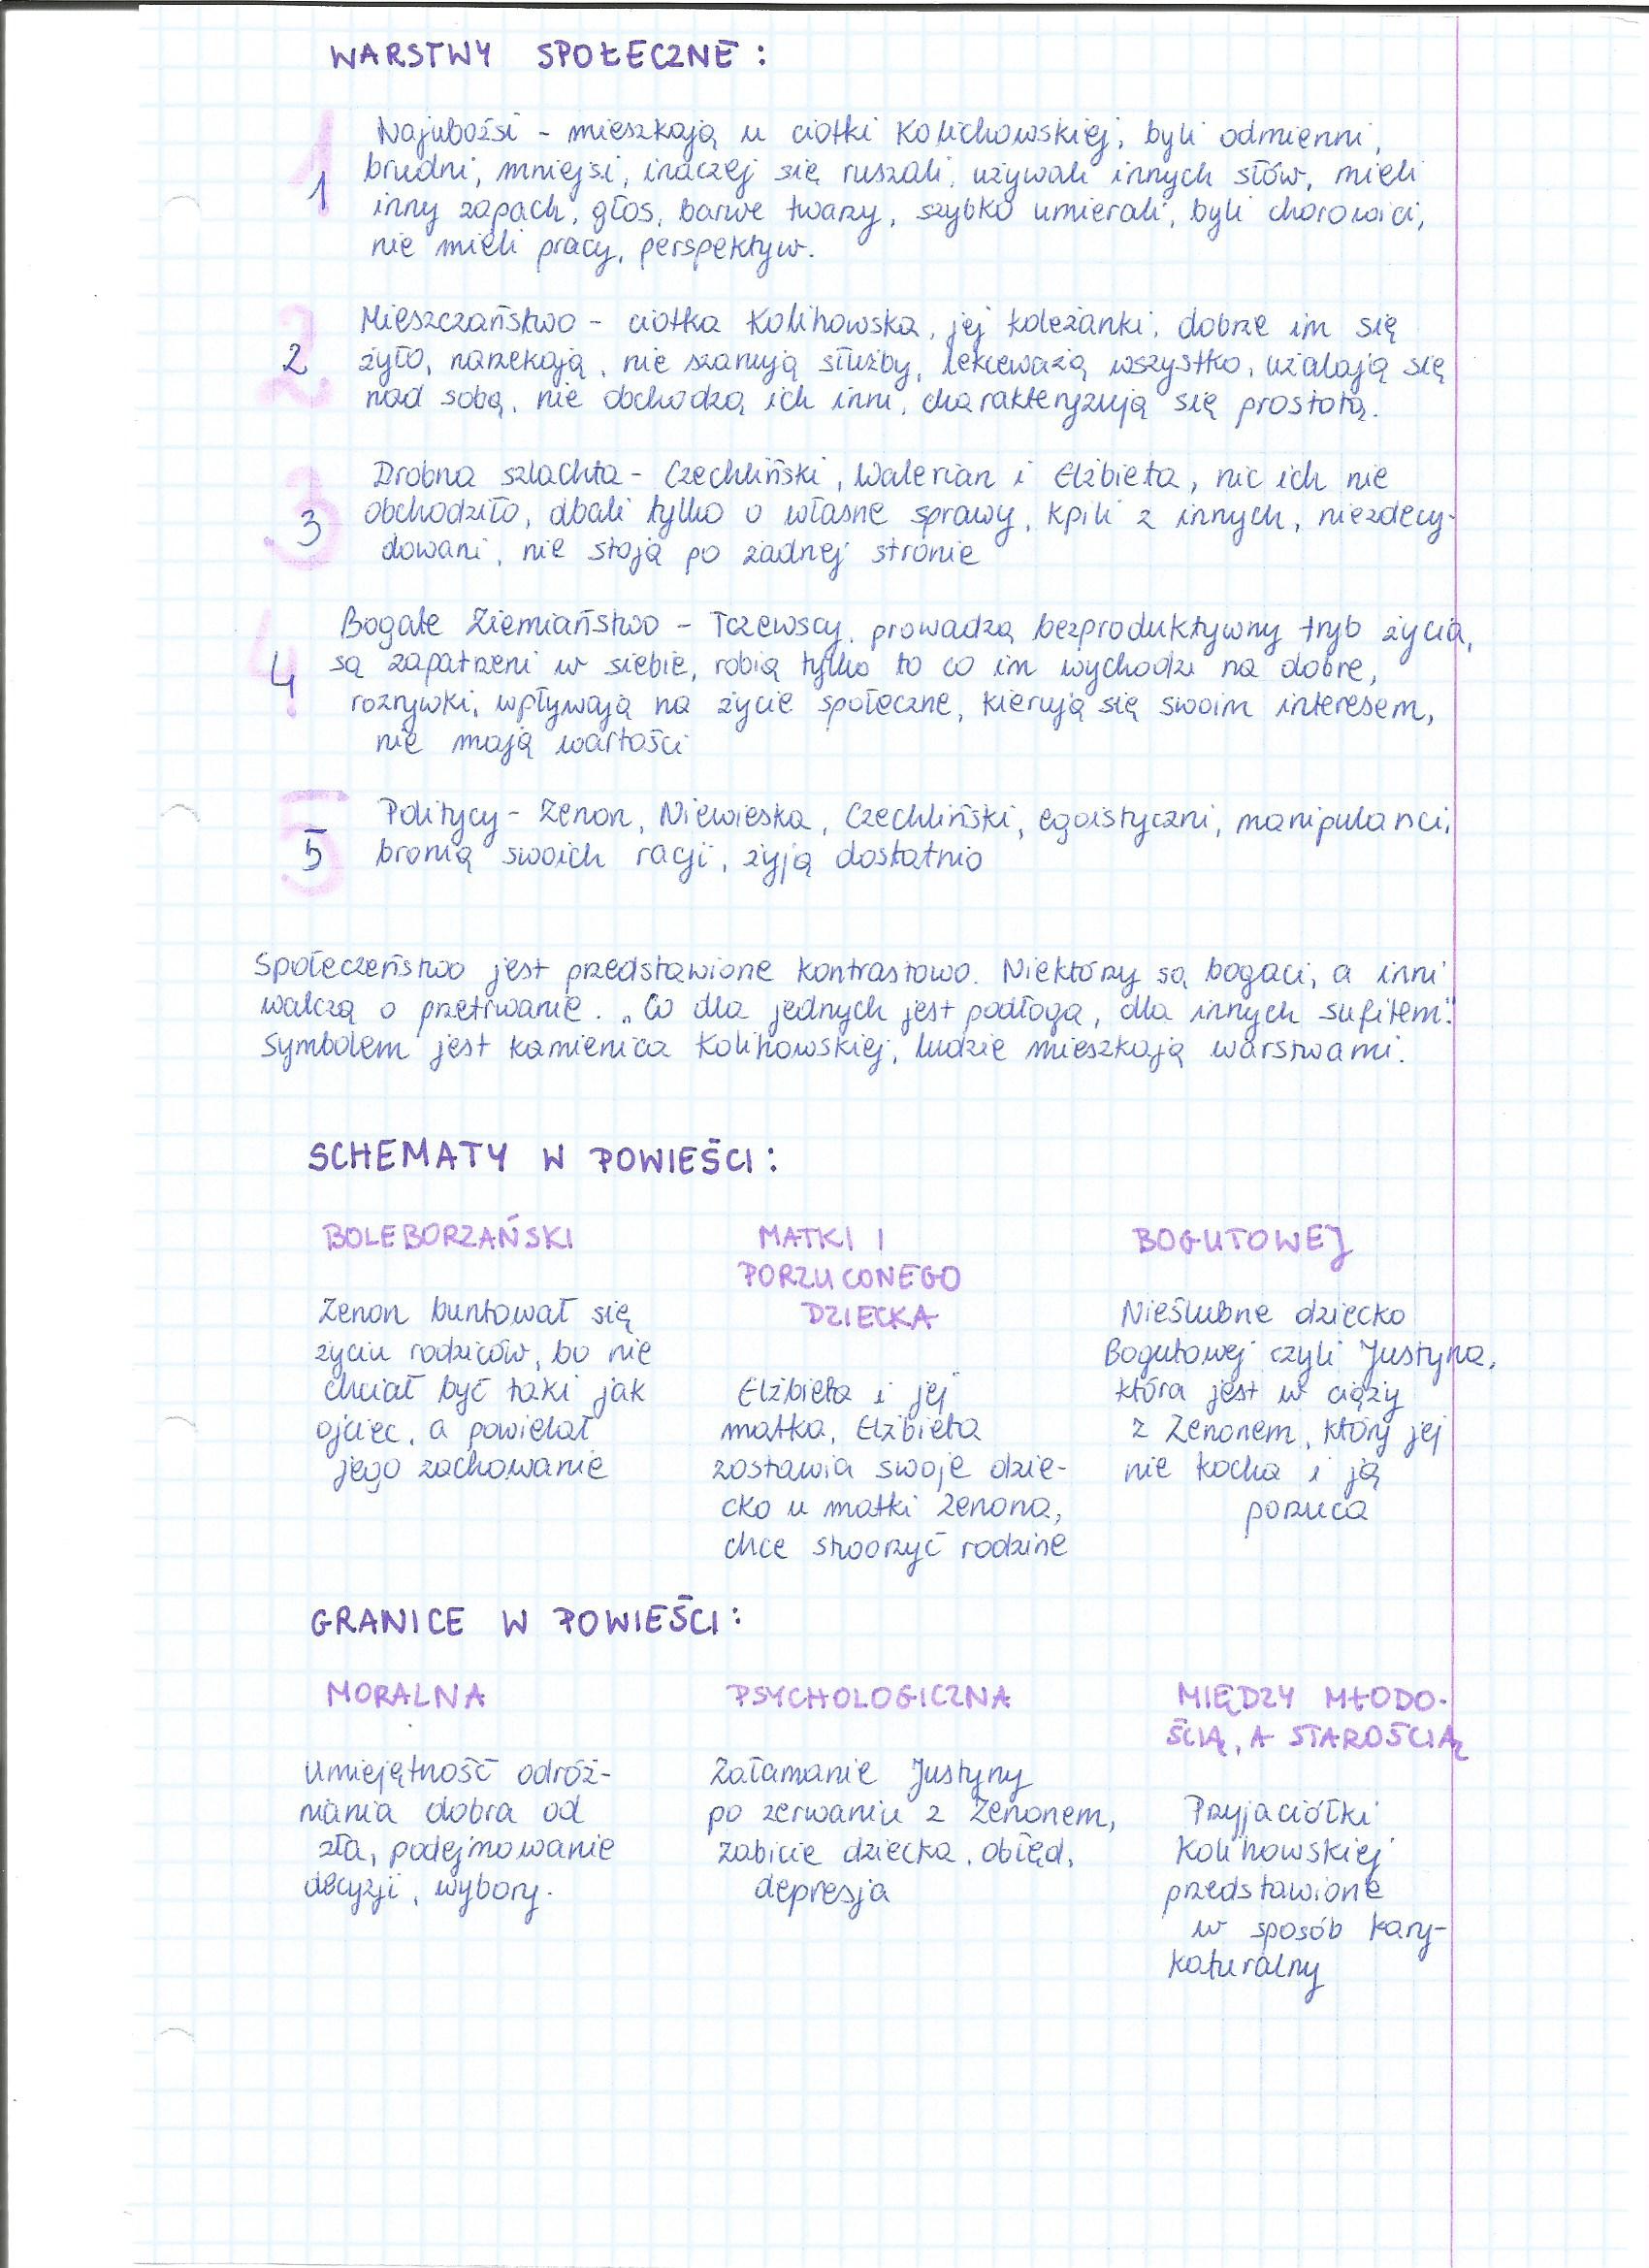 WARSTWY SPOŁECZNE:
1 Najubożsi - mieszkają u ciotki Kolichowskiej, byli odmienni,
brudni, mniejsi, inaczej się ruszali, używali innych słów, mieli
inny zapach, głos, barwe twarzy, szybko umierali, byli chorowici,
nie mieli pracy, perspektyw.
2 Mieszczaństwo - ciotka Kolihowska, jej koleżanki, dobrze im się
żyło, narzekają, nie szanują służby, lekceważą wszystko, użalają się
nad sobą, nie obchodzą ich inni, charakteryzują się prostotą.
3 Drobna szlachta - Czechliński, Walerian i Elżbieta, nic ich nie
obchodziło, dbali tylko o własne sprawy, kpili z innych, niezdecy-
dowani, nie stoją po żadnej stronie
4 Bogate Ziemiaństwo - Tczewscy, prowadzą bezproduktywny tryb życia,
są zapatrzeni w siebie, robią tylko to co im wychodzi na dobre,
rozrywki, wpływają na życie społeczne, kierują się swoim interesem,
nie mają wartości
5 Politycy - Zenon, Niewieska, Czechliński, egoistyczni, manipulanci,
bronią swoich racji, żyją dostatnio
Społeczeństwo jest przedstawione kontrastowo. Niektórzy są bogaci, a inni
walczą o przetrwanie. „Co dla jednych jest podłogą, dla innych sufitem."
Symbolem jest kamienica Kolihowskiej, ludzie mieszkają warstwami.
SCHEMATY W POWIEŚCI:
BOLEBORZAŃSKI
Zenon buntował się
życiu rodziców, bo nie
chciał być taki jak
ojciec, a powielał
jego zachowanie
MATKI I
PORZUCONEGO
DZIECKA
Elżbieta i jej
matka, Elżbieta
zostawia swoje dzie-
cko u matki Zenona,
chce stworzyć rodzine
BOGUTOWEJ
Nieślubne dziecko
Bogutowej czyli Justyna,
która jest w ciąży
z Zenonem, który jej
nie kocha i ją
porzuca
GRANICE W POWIEŚCI:
MORALNA
Umiejętność odróż-
niania dobra od
zła, podejmowanie
decyzji, wybory.
PSYCHOLOGICZNA
Załamanie Justyny
po zerwaniu z Zenonem,
zabicie dziecka, obłęd,
depresja
MIĘDZY MŁODO-
ŚCIĄ, A STAROŚCIĄ
Przyjaciółki
Kolihowskiej
przedstawione
w sposób kary-
katuralny